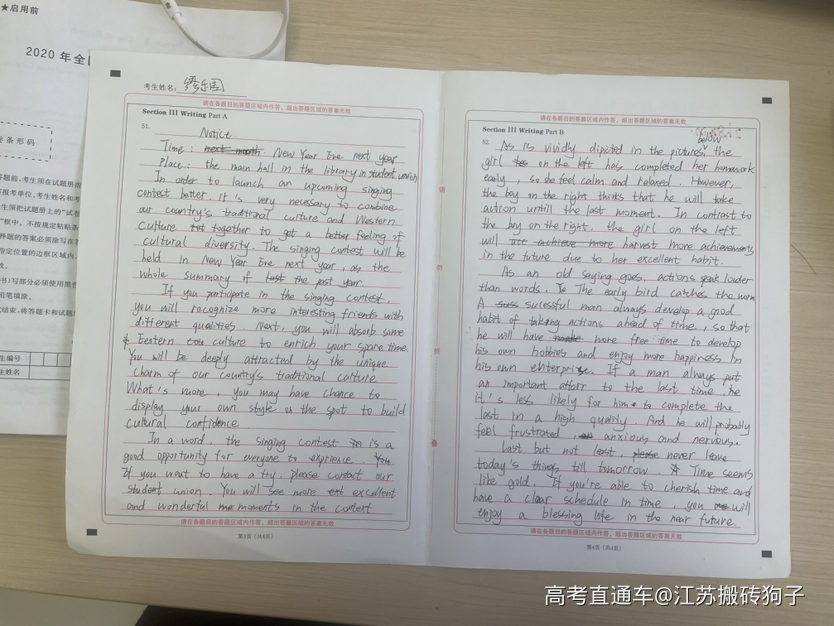 ★启用前
2020年全
条形码
考生姓名：
请在各题目的答题区域内作答，超出答题区域的答案无效
Section III Writing Part A
51.
Notice
Time: next month New Year Eve next year
Place: the main hall in the library in student union
In order to launch an upcoming singing
contest better, it's very necessary to combine
our country's traditional culture and Western
culture together to get a better feeling of
cultural diversity. The singing contest will be
held in New Year Eve next year, as the
whole summary of last the past year.
If you participate in the singing contest,
you will recognize more interesting friends with
different qualities. Next, you will absorb some
Eestern culture to enrich your spare time.
You will be deeply attracted by the unique
charm of our country's traditional culture
What's more, you may have chance to
display your own style on the spot to build
cultural confidence.
In a word, the singing contest is a
good opportunity for everyone to exprience. You
If you want to have a try, please contact our
student union. You will see more excellent
and wonderful moments in the contest
请在各题目的答题区域内作答，超出答题区域的答案无效
第3页（共4页）
请在各题目的答题区域内作答，超出答题区域的答案无效
Section III Writing Part B
52.
below
As is vividly dipicted in the pictures, the
girl on the left has completed her homework
early, so she feel calm and relaxed. However,
the boy on the right thinks that he will take
action untill the last moment. In contrast to
the boy on the right, the girl on the left
will achieve more harvest more achievements
in the future due to her excellent habit.
As an old saying goes, actions speak louder
than words. The early bird catches the worm
A sucessful man always develop a good
habit of taking actions ahead of time, so that
he will have more free time to develop
his own hobbies and enjoy more happiness in
his own enterprise. If a man always put
an important effort to the last time, he
it's less likely for him to complete the
last in a high quality. And he will probably
feel frustrated, anxious and nervous.
Last but not least, please never leave
today's things till tomorrow. Time seems
like gold. If you're able to cherish time and
have a clear schedule in time, you will
enjoy a blessing life in the near future.
请在各题目的答题区域内作答，超出答题区域的答案无效
第4页（共4页）
高考直通车@江苏搬砖狗子